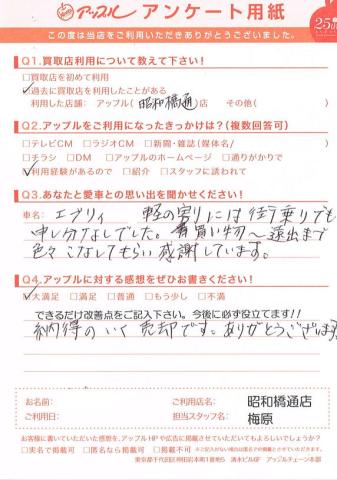 アップル アンケート用紙
25th
この度は当店をご利用いただきありがとうございました。
Q1.買取店利用について教えて下さい!
□買取店を初めて利用
☑過去に買取店を利用したことがある
利用した店舗: アップル(昭和橋通)店 その他( )
Q2.アップルをご利用になったきっかけは?(複数回答可)
□テレビCM □ラジオCM □新聞・雑誌(媒体名/ )
□チラシ □DM □アップルのホームページ □通りがかりで
☑利用経験があるので □紹介 □スタッフに誘われて
Q3.あなたと愛車との思い出を聞かせください!
車名: エブリィ 軽の割りには街乗りでも
申し分なしでした。買い物〜遠出まで
色々こなしてもらい感謝しています。
Q4.アップルに対する感想をぜひお書きください!
☑大満足 □満足 □普通 □もう少し □不満
できるだけ改善点をご記入下さい。今後に必ず役立てます!!
納得のいく売却です。ありがとうございます
お名前: ご利用店名: 昭和橋通店
ご利用日: 担当スタッフ名: 梅原
お客様に書いていただいた感想を、アップルHPや広告に掲載させていただいてもよろしいでしょうか?
□実名で掲載可 □匿名なら掲載可 □掲載不可
東京都千代田区神田岩本町1番地5 清水ビル6F アップルチェーン本部